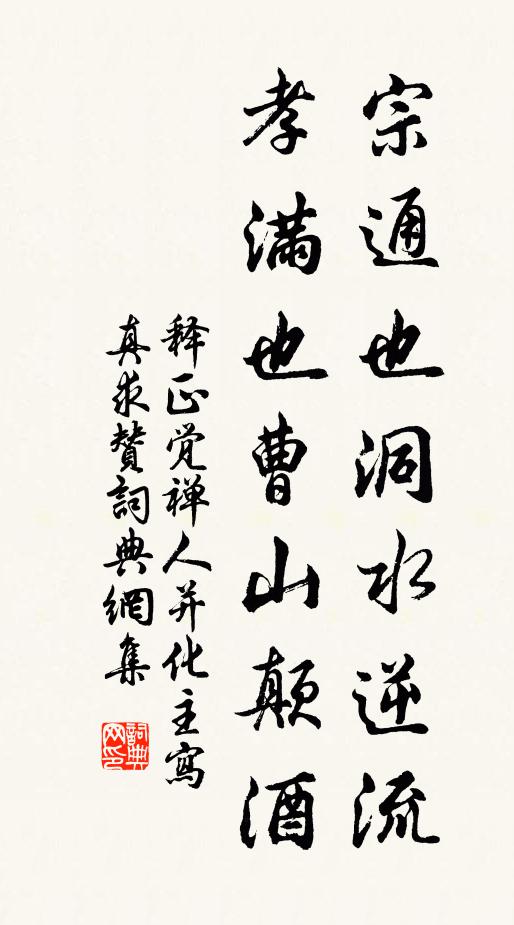 宗通也洞水逆流
孝满也曹山颠酒
释正觉禅人并化主寫
真求赞詞典網集
詞典网印